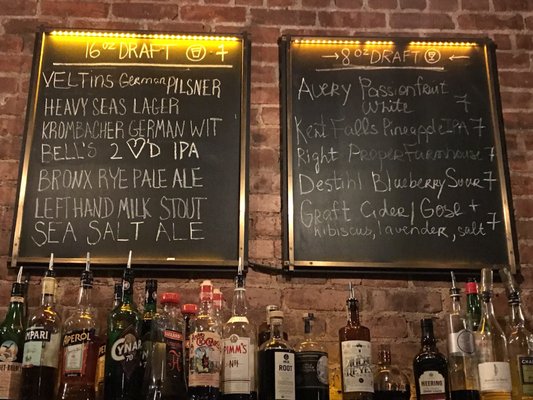 16 OZ DRAFT 7
VELTINS GERMAN PILSNER
HEAVY SEAS LAGER
KROMBACHER GERMAN WIT
BELL'S 2♡'D IPA
BRONX RYE PALE ALE
LEFT HAND MILK STOUT
SEA SALT ALE
→ 8 OZ DRAFT ←
Avery Passionfruit
White 7
Kent Falls Pineapple IPA 7
Right Proper 7
Destihl Blueberry Sour 7
Graft Cider/Gose +
hibiscus, lavender, salt 7
CAMPARI
APEROL
CYNAR
70
PIMM'S
ROOT
HEERING